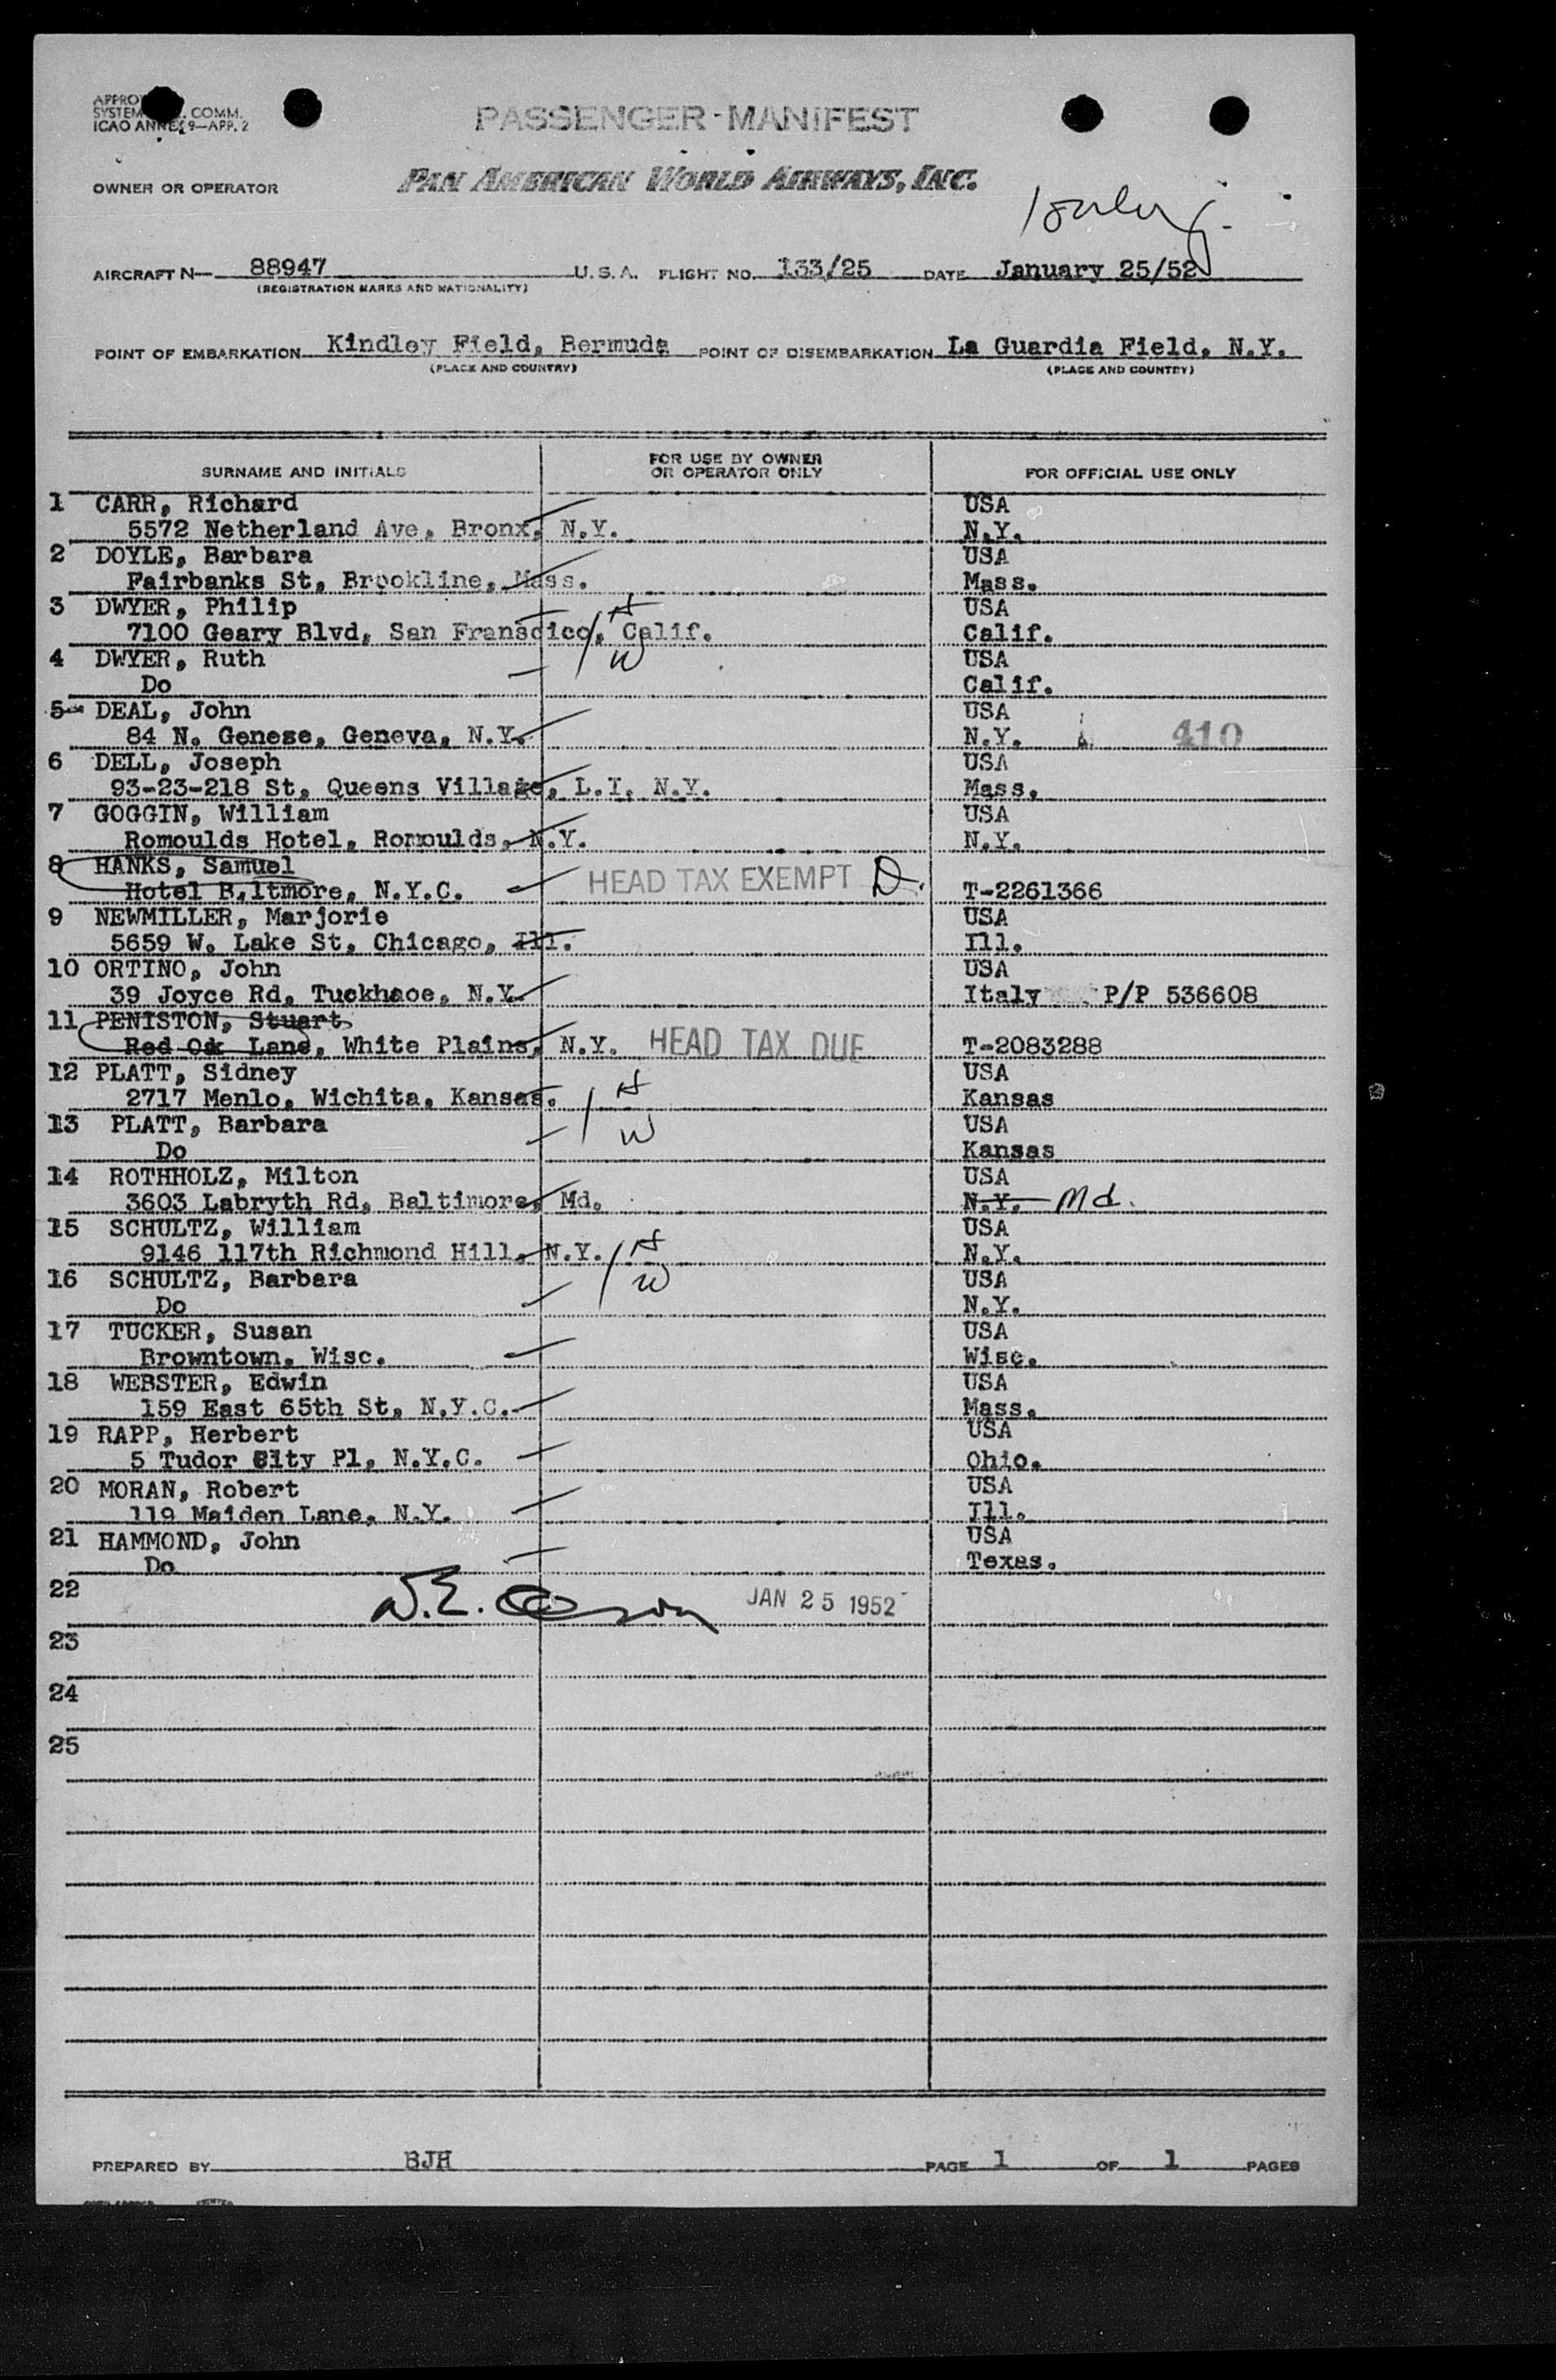 PASSENGER-MANIFEST
COMM.
ICAO ANNEX 9—APP. 2
OWNER OR OPERATOR PAN AMERICAN WORLD AIRWAYS, INC.
AIRCRAFT N— 88947 U.S.A. FLIGHT NO. 133/25 DATE January 25/52
(REGISTRATION MARKS AND NATIONALITY)
POINT OF EMBARKATION Kindley Field, Bermuda POINT OF DISEMBARKATION La Guardia Field, N.Y.
(PLACE AND COUNTRY) (PLACE AND COUNTRY)
SURNAME AND INITIALS FOR USE BY OWNER OR OPERATOR ONLY FOR OFFICIAL USE ONLY
1 CARR, Richard USA
5572 Netherland Ave, Bronx, N.Y. N.Y.
2 DOYLE, Barbara USA
Fairbanks St, Brookline, Mass. Mass.
3 DWYER, Philip H USA
7100 Geary Blvd, San Fransdico, Calif. Calif.
4 DWYER, Ruth W USA
Do Calif.
5 DEAL, John USA
84 N. Genese, Geneva, N.Y. N.Y. 410
6 DELL, Joseph USA
93-23-218 St, Queens Village, L.I. N.Y. Mass.
7 GOGGIN, William USA
Romoulds Hotel, Romoulds, N.Y. N.Y.
8 HANKS, Samuel
Hotel B.ltmore, N.Y.C. HEAD TAX EXEMPT D. T-2261366
9 NEWMILLER, Marjorie USA
5659 W. Lake St, Chicago, Ill. Ill.
10 ORTINO, John USA
39 Joyce Rd, Tuckhaoe, N.Y. Italy P/P 536608
11 PENISTON, Stuart
Red Oak Lane, White Plains, N.Y. HEAD TAX DUE T-2083288
12 PLATT, Sidney H USA
2717 Menlo, Wichita, Kansas. Kansas
13 PLATT, Barbara W USA
Do Kansas
14 ROTHHOLZ, Milton USA
3603 Labryth Rd, Baltimore, Md. N.Y. Md.
15 SCHULTZ, William H USA
9146 117th Richmond Hill, N.Y. N.Y.
16 SCHULTZ, Barbara W USA
Do N.Y.
17 TUCKER, Susan USA
Browntown, Wisc. Wisc.
18 WEBSTER, Edwin USA
159 East 65th St, N.Y.C. Mass.
19 RAPP, Herbert USA
5 Tudor City Pl, N.Y.C. Ohio.
20 MORAN, Robert USA
119 Maiden Lane, N.Y. Ill.
21 HAMMOND, John USA
Do Texas.
22 JAN 25 1952
23
24
25
PREPARED BY BJH PAGE 1 OF 1 PAGES